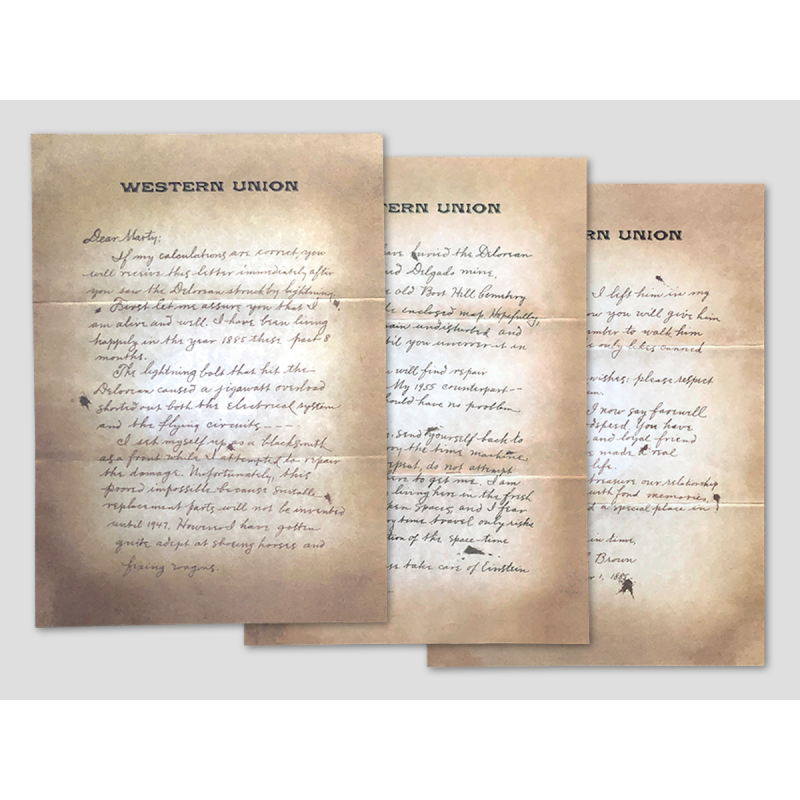 WESTERN UNION
Dear Marty;
If my calculations are correct, you
will recieve this letter immediately after
you saw the Delorian struck by lightning.
First let me assure you that I
am alive and well. I have been living
happily in the year 1885 these past 8
months.
The lightning bolt that hit the
Delorian caused a jigawatt overload
shorted out both the electrical system
and the flying circuits----
I set myself up as a blacksmith
as a front while I attempted to repair
the damage. Unfortunately, this
proved impossible because suitable
replacement parts will not be invented
until 1947. However I have gotten
quite adept at shoeing horses and
fixing wagons.
TERN UNION
have buried the Delorian
Delgada mine,
old Boot Hill Cemetery
enclosed map. Hopefully,
undisturbed and
til you uncover it in
will find repair
My 1955 counterpart--
ould have no problem
send yourself back to
the time machine
repeat, do not attempt
to get me. I am
living here in the fresh
Spaces, and I fear
time travel only risks
tion of the space-time
take care of Einstein
RN UNION
I left him in my
you will give him
to walk him
only likes canned
wishes: please respect
I now say farewell
dspeed. You have
and loyal friend
made a real
life.
treasure our relationship
with fond memories,
d a special place in
in time,
Brown
1, 1885